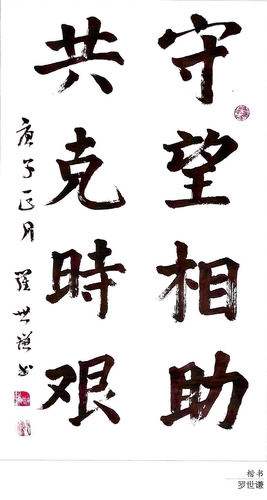 守望相助
共克時艱
庚子正月 羅世謙书
楷书
罗世谦